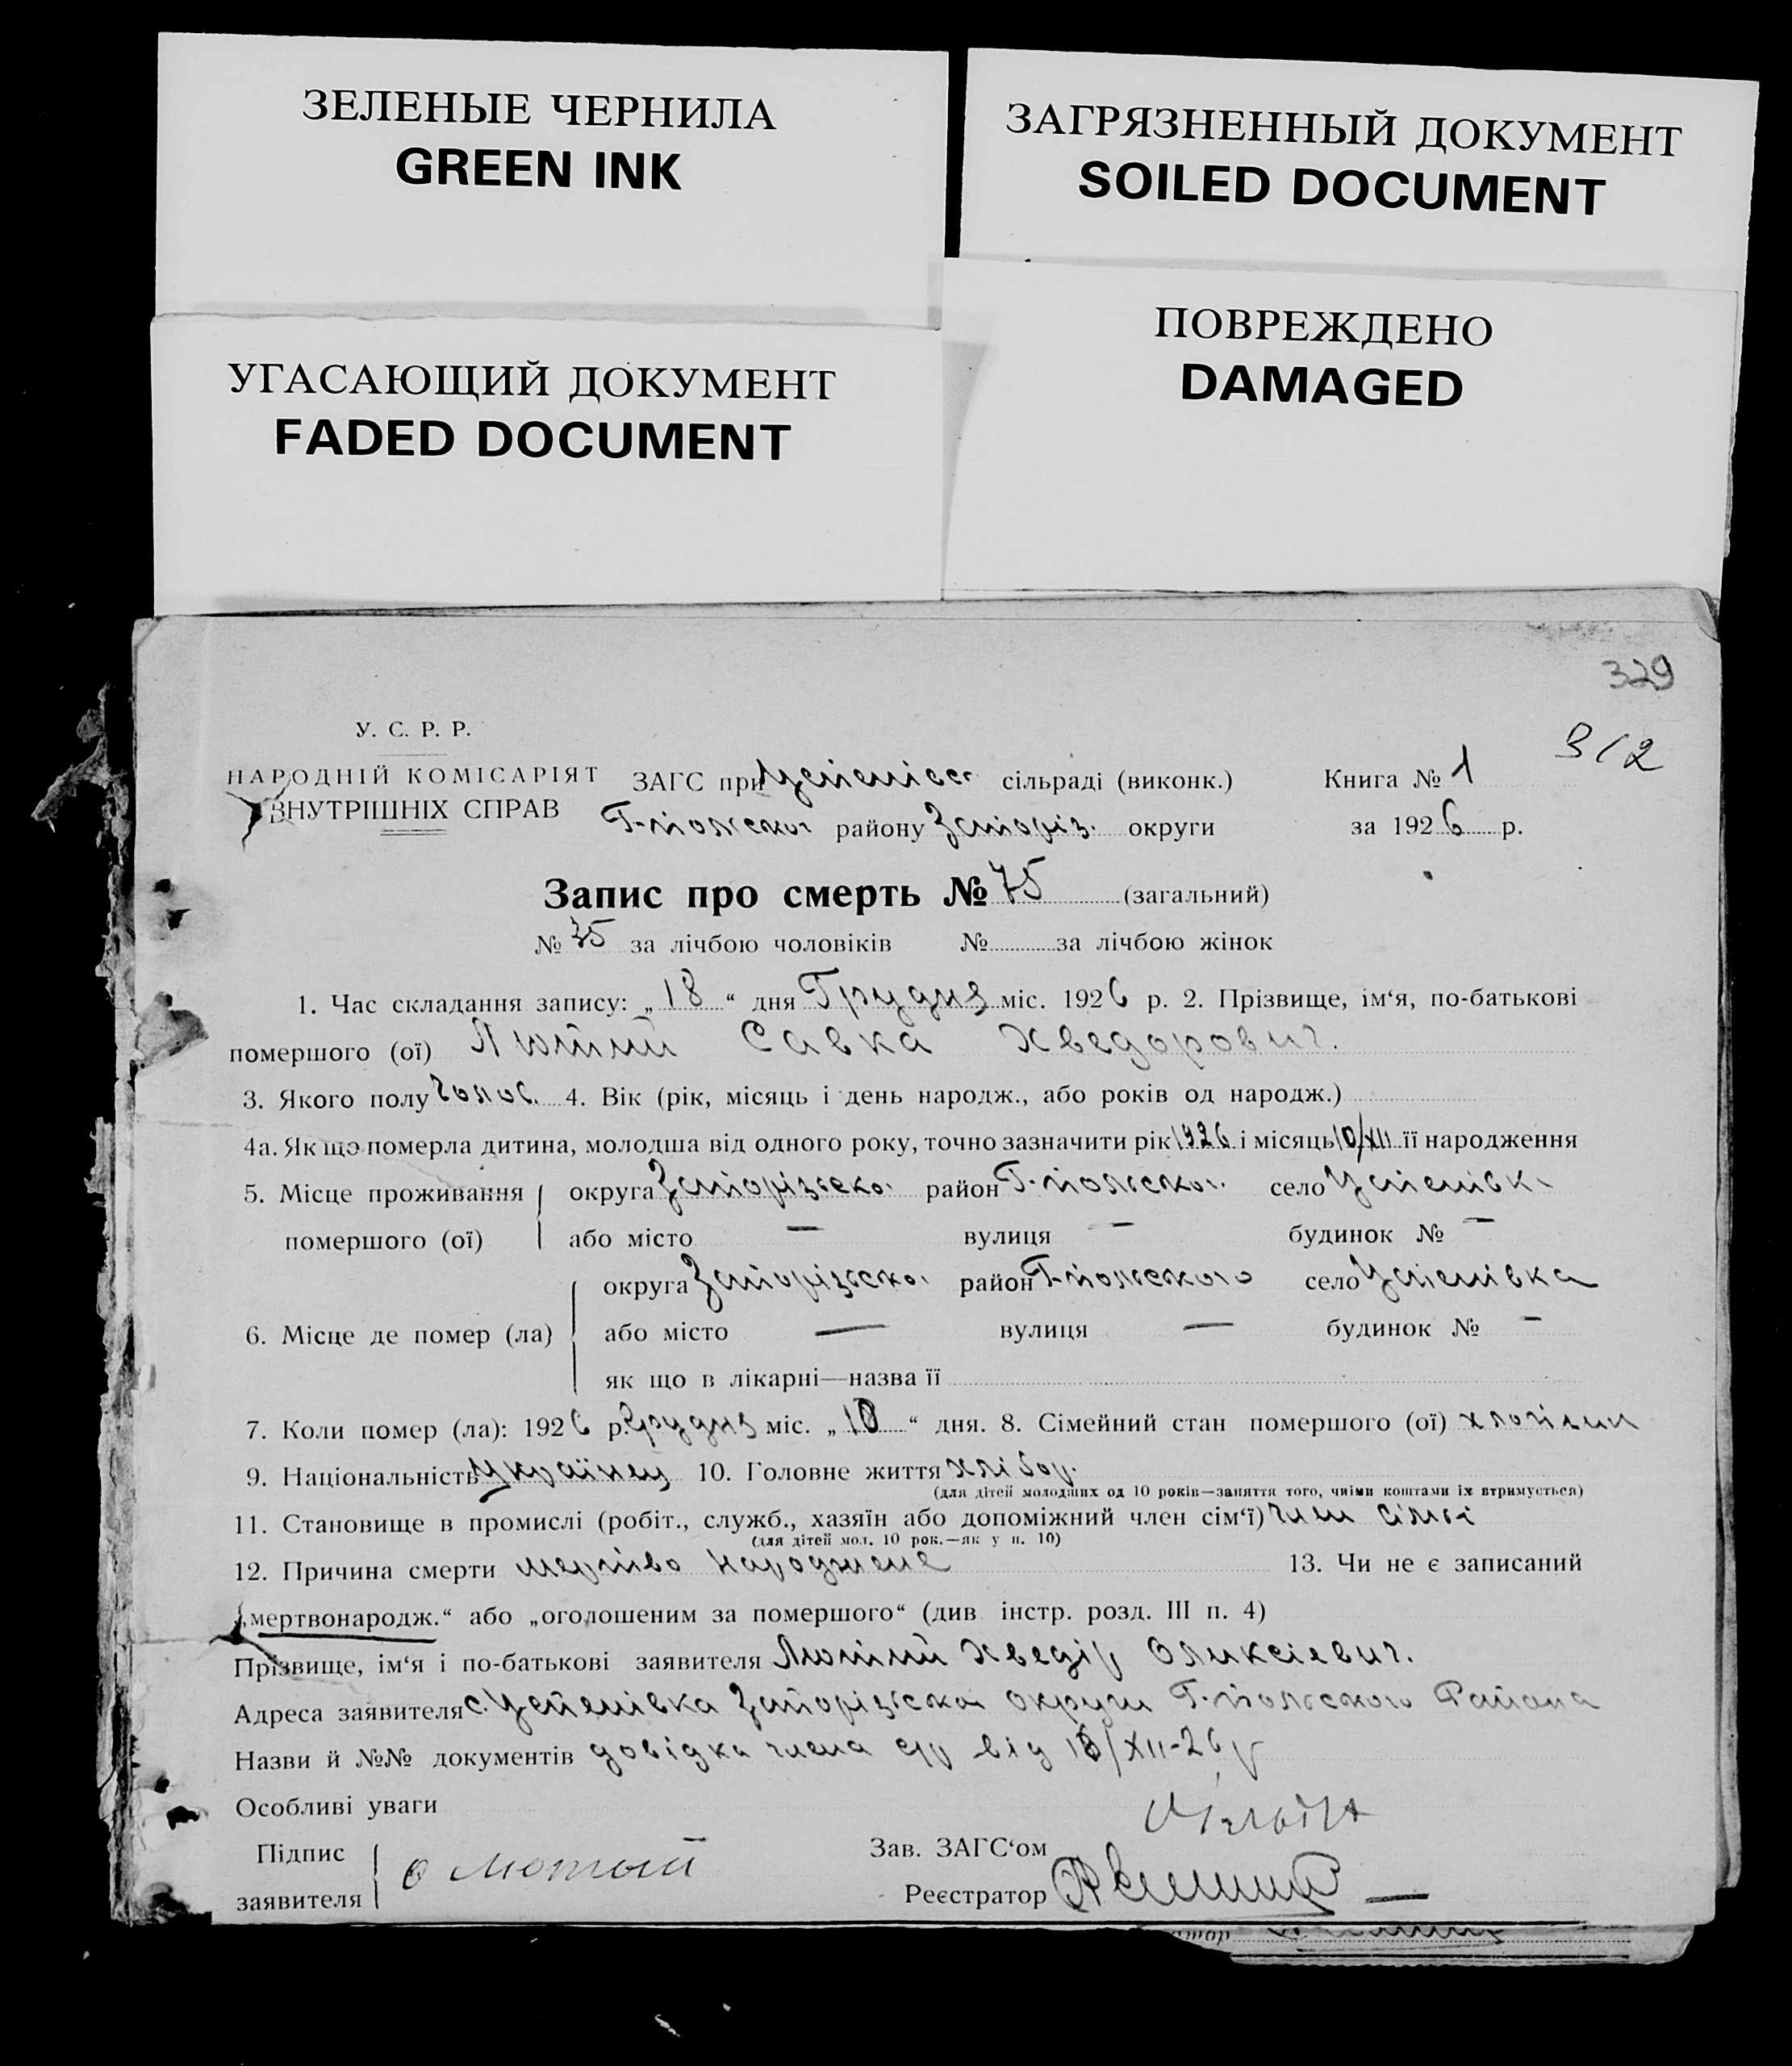 ЗЕЛЕНЫЕ ЧЕРНИЛА
GREEN INK
ЗАГРЯЗНЕННЫЙ ДОКУМЕНТ
SOILED DOCUMENT
УГАСАЮЩИЙ ДОКУМЕНТ
FADED DOCUMENT
ПОВРЕЖДЕНО
DAMAGED
329
312
У. С. Р. Р.
НАРОДНІЙ КОМІСАРІЯТ
ВНУТРІШНІХ СПРАВ
ЗАГС при Успенівс сільраді (виконк.) Книга № 1
Г-польсько району Запоріз. округи за 1926 р.
Запис про смерть № 75 (загальний)
№ 35 за лічбою чоловіків № за лічбою жінок
1. Час складання запису: „18“ дня Грудня міс. 1926 р. 2. Прізвище, ім‘я, по-батькові
помершого (ої) Лютий Савка Хведорович.
3. Якого полу чолов. 4. Вік (рік, місяць і день народж., або років од народж.)
4а. Як що померла дитина, молодша від одного року, точно зазначити рік 1926 і місяць 10/XII її народження
5. Місце проживання округа Запорізсько район Г-польсько село Успенівк
помершого (ої) або місто — вулиця — будинок № —
округа Запорізсько район Г-польського село Успенівка
6. Місце де помер (ла) або місто — вулиця — будинок № —
як що в лікарні—назва її
7. Коли помер (ла): 1926 р. Грудня міс. „10“ дня. 8. Сімейний стан помершого (ої)
9. Національність Українец 10. Головне життя хлібор.
(для дітей молодших од 10 років—заняття того, чиїми коштами їх втримується)
11. Становище в промислі (робіт., служб., хазяїн або допоміжний член сім‘ї) член сімьі
(для дітей мол. 10 рок.—як у п. 10)
12. Причина смерти мертво народжене 13. Чи не є записаний
„мертвонародж.“ або „оголошеним за помершого“ (див. інстр. розд. III п. 4)
Прізвище, ім‘я і по-батькові заявителя Лютий Хведір Олексієвич.
Адреса заявителя с. Успенівка Запорізсько округи Г-польського Района
Назви й №№ документів довідка члена с/р від 18/XII-26 р
Особливі уваги
Підпис
заявителя Лютый
Зав. ЗАГС‘ом
Реєстратор